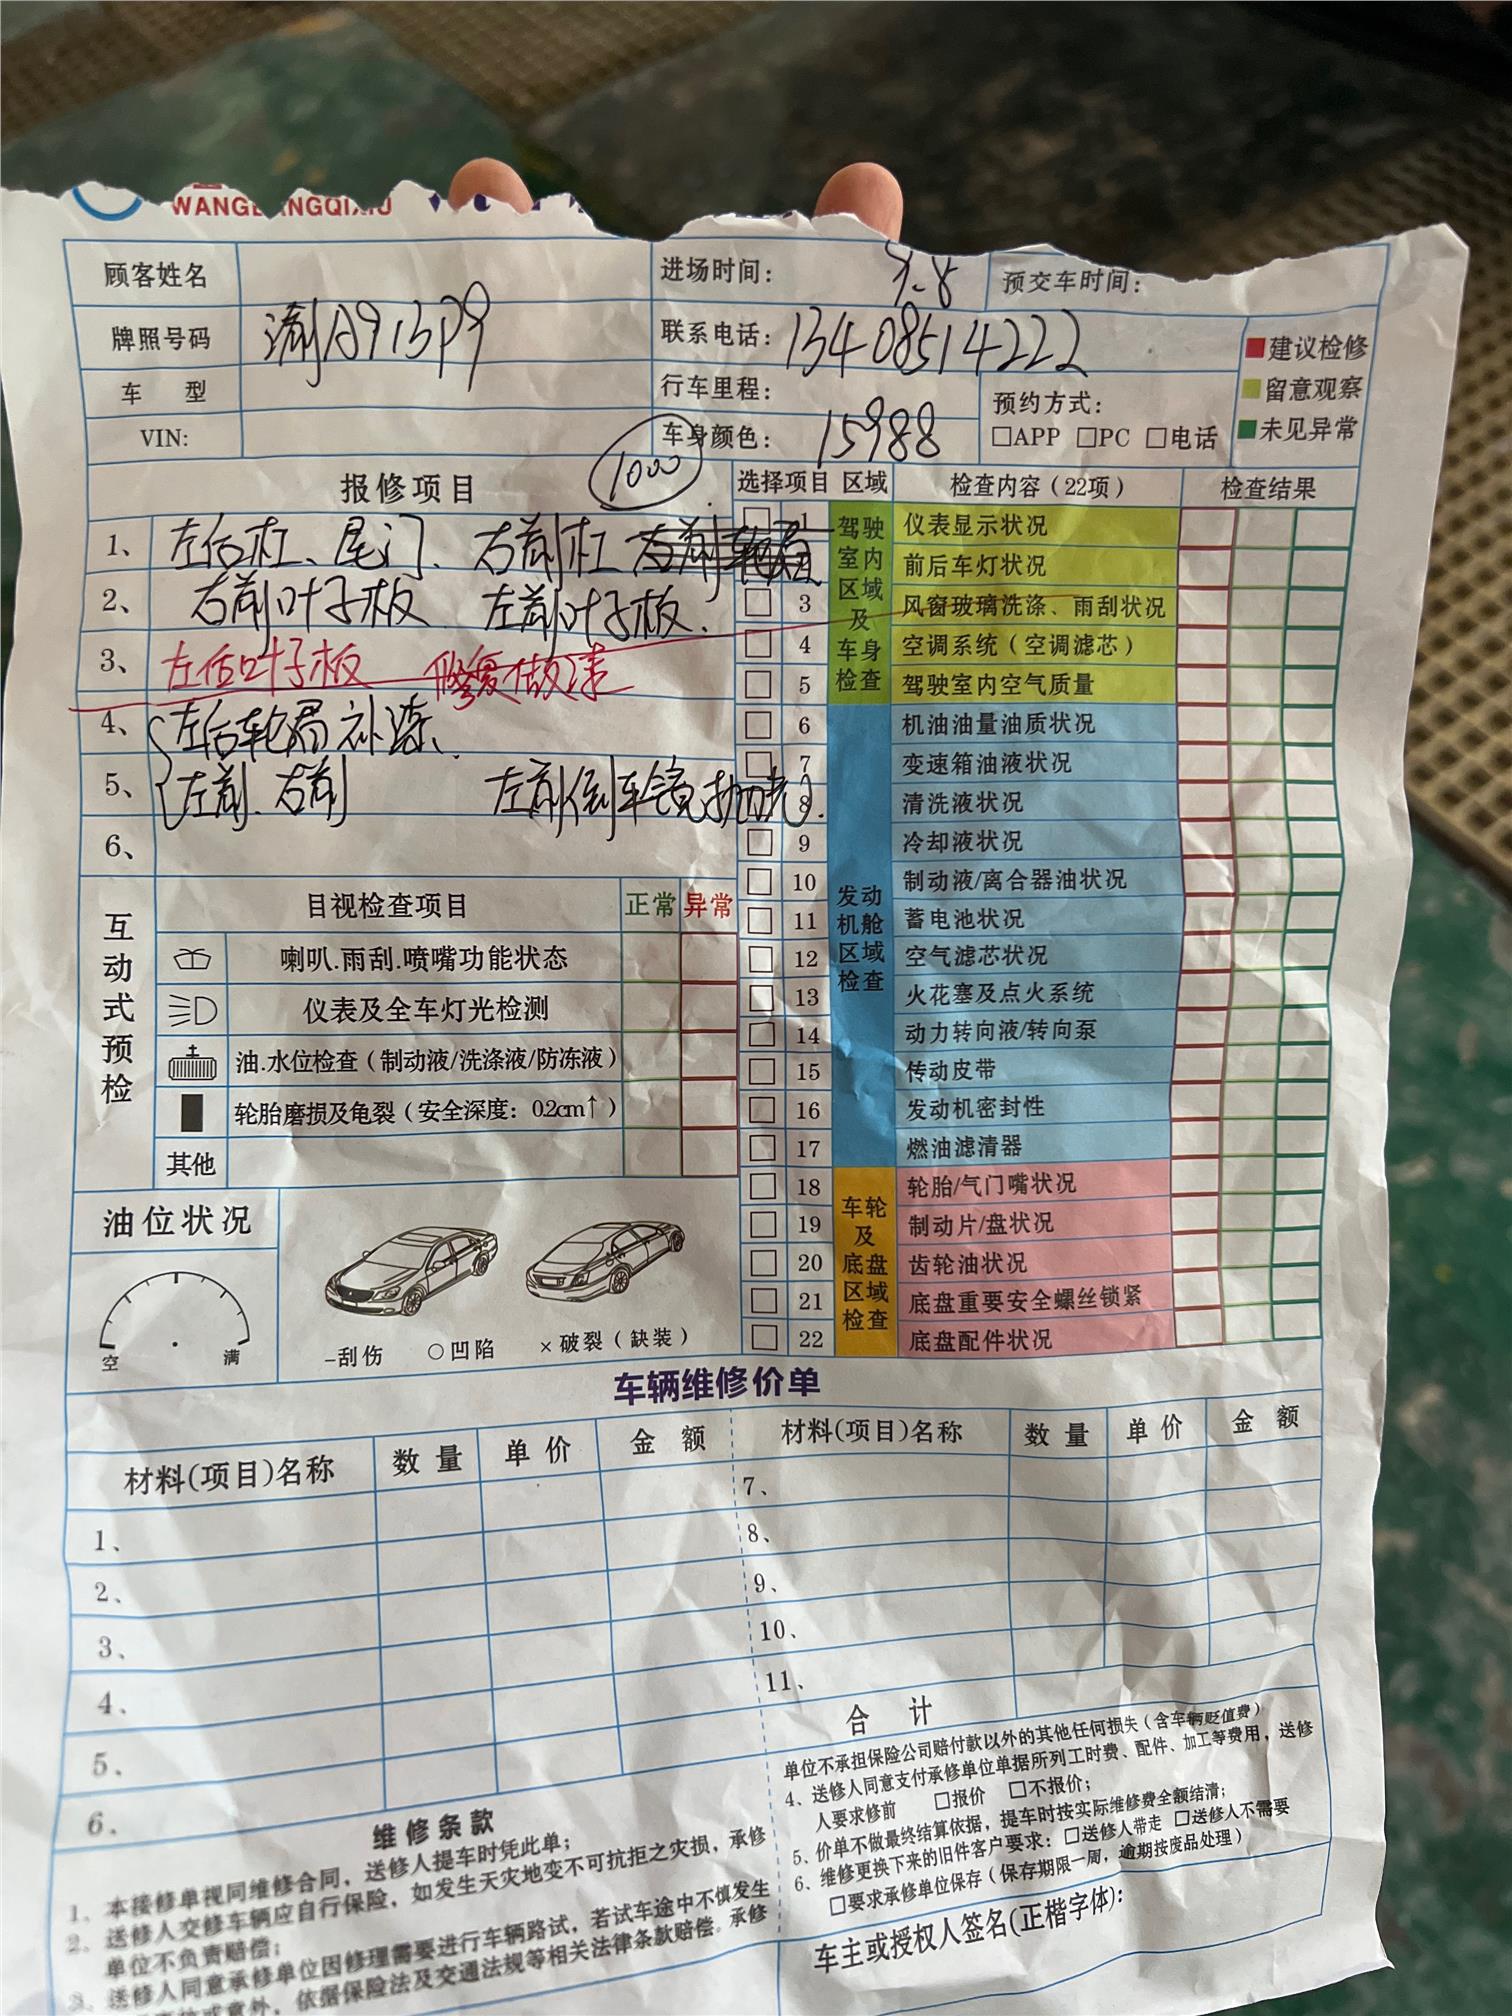 顾客姓名
进场时间：
预交车时间：
牌照号码
A913P9
联系电话：13408514222
车 型
行车里程：
预约方式：
□APP □PC □电话
VIN:
车身颜色：15988
建议检修
留意观察
未见异常
报修项目
1000
1、左后杠、尾门、右前杠
2、右前叶子板 左前叶子板.
3、左后叶子板 修复做漆
4、左后轮眉补漆、
5、左前、右前 左前倒车镜抛光.
6、
选择项目 区域 检查内容（22项） 检查结果
驾驶室内区域及车身检查
1 仪表显示状况
前后车灯状况
3 风窗玻璃洗涤、雨刮状况
4 空调系统（空调滤芯）
5 驾驶室内空气质量
发动机舱区域检查
6 机油油量油质状况
7 变速箱油液状况
8 清洗液状况
9 冷却液状况
10 制动液/离合器油状况
11 蓄电池状况
12 空气滤芯状况
13 火花塞及点火系统
14 动力转向液/转向泵
15 传动皮带
16 发动机密封性
17 燃油滤清器
车轮及底盘区域检查
18 轮胎/气门嘴状况
19 制动片/盘状况
20 齿轮油状况
21 底盘重要安全螺丝锁紧
22 底盘配件状况
互动式预检
目视检查项目 正常 异常
喇叭.雨刮.喷嘴功能状态
仪表及全车灯光检测
油.水位检查（制动液/洗涤液/防冻液）
轮胎磨损及龟裂（安全深度：0.2cm↑）
其他
油位状况
空 满
-刮伤 ○凹陷 ×破裂（缺装）
车辆维修价单
材料(项目)名称 数量 单价 金额
材料(项目)名称 数量 单价 金额
1、
2、
3、
4、
5、
6、
7、
8、
9、
10、
11、
合 计
维修条款
1、本接修单视同维修合同，送修人提车时凭此单；
2、送修人交修车辆应自行保险，如发生天灾地变不可抗拒之灾损，承修
单位不负责赔偿；
3、送修人同意承修单位因修理需要进行车辆路试，若试车途中不慎发生
意外，依据保险法及交通法规等相关法律条款赔偿。承修
单位不承担保险公司赔付款以外的其他任何损失（含车辆贬值费）
4、送修人同意支付承修单位单据所列工时费、配件、加工等费用，送修
人要求修前 □报价 □不报价；
5、价单不做最终结算依据，提车时按实际维修费全额结清；
6、维修更换下来的旧件客户要求：□送修人带走 □送修人不需要
□要求承修单位保存（保存期限一周，逾期按废品处理）
车主或授权人签名(正楷字体)：